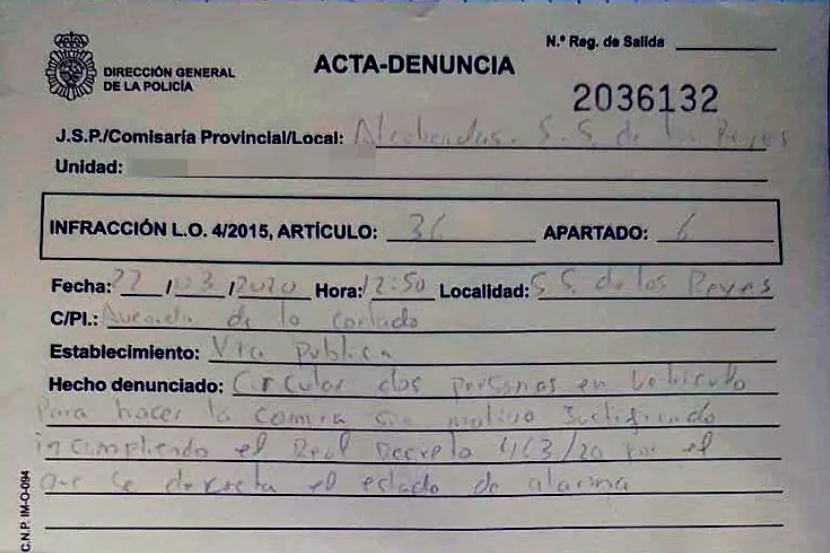 DIRECCIÓN GENERAL
DE LA POLICÍA
ACTA-DENUNCIA
N.º Reg. de Salida
2036132
J.S.P./Comisaría Provincial/Local: Alcobendas. S. S. de los Reyes
Unidad:
INFRACCIÓN L.O. 4/2015, ARTÍCULO: 36 APARTADO: 6
Fecha: 22/03/2020 Hora: 12:50 Localidad: S. S. de los Reyes
C/Pl.: Avenida de la
Establecimiento: Via Publica
Hecho denunciado: Circular dos personas en Vehiculo
Para hacer la compra sin motivo Justificado
incumpliendo el Real Decreto 463/20 por el
que se decreta el estado de alarma
C.N.P. IM-O-094